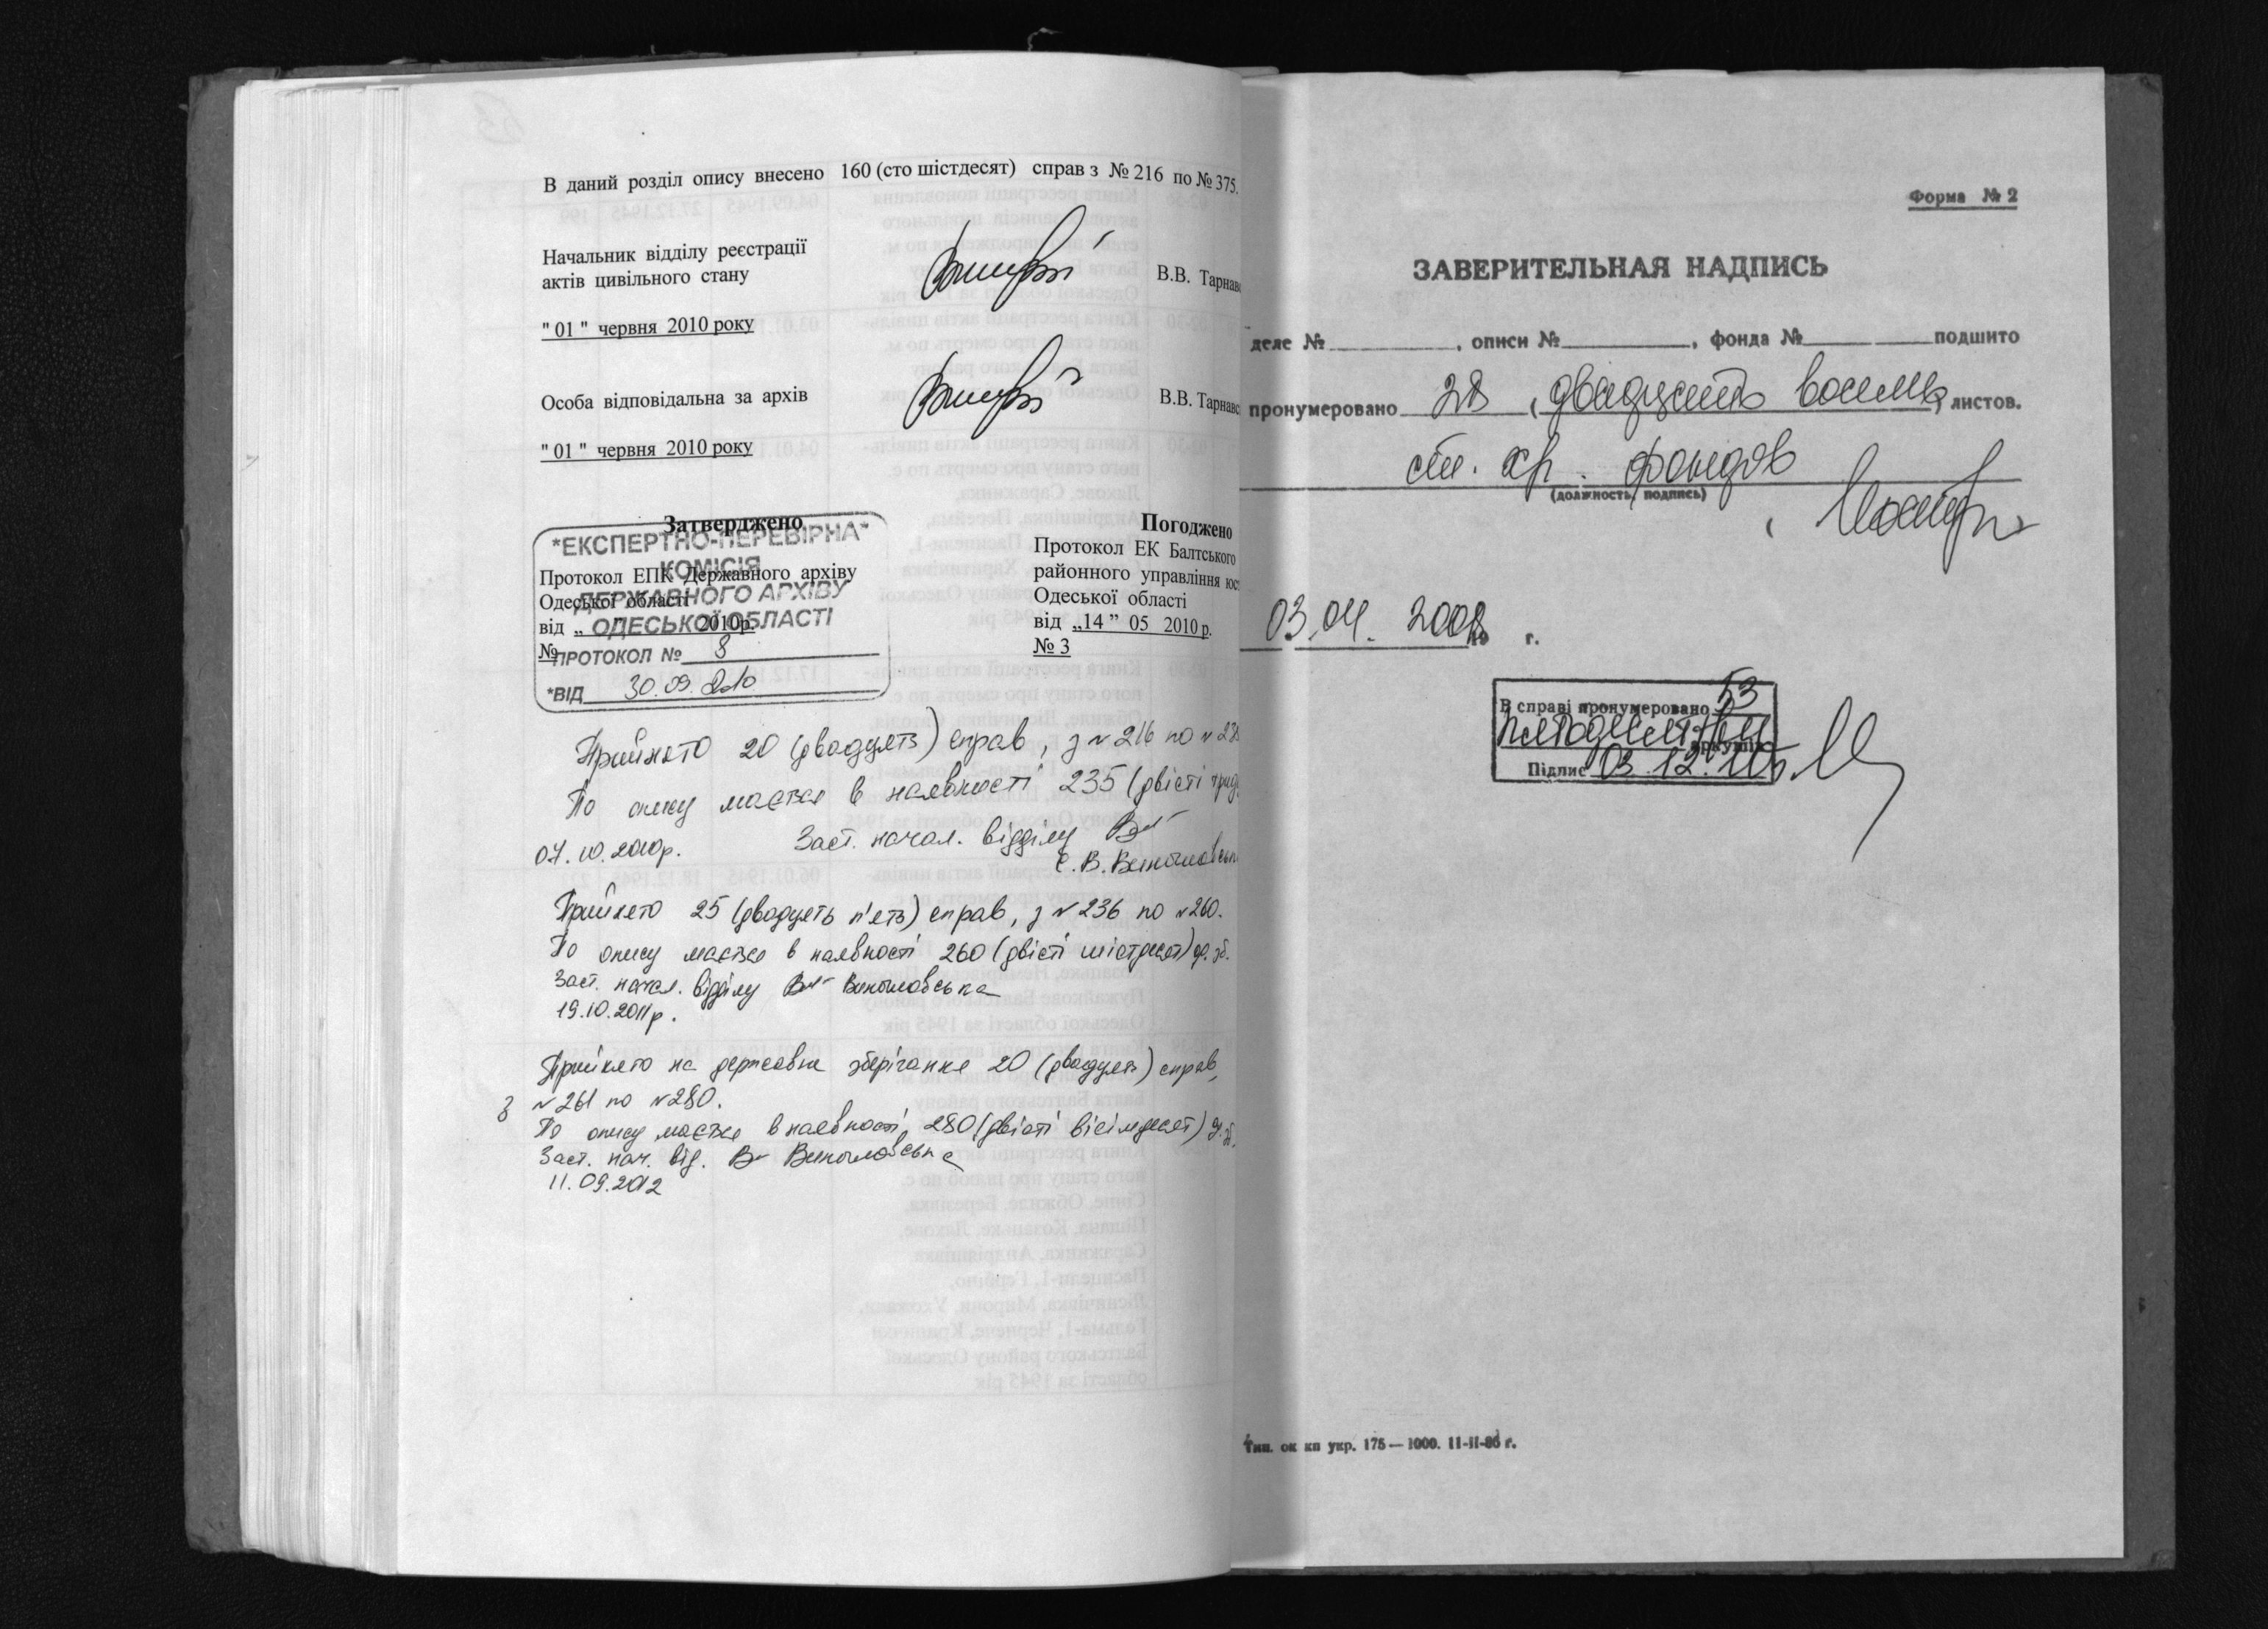 В даний розділ опису внесено 160 (сто шістдесят) справ з № 216 по № 375.
Начальник відділу реєстрації
актів цивільного стану
В.В. Тарнавс
" 01 " червня 2010 року
Особа відповідальна за архів
В.В. Тарнавс
" 01 " червня 2010 року
Затверджено
Протокол ЕПК Державного архіву
Одеської області
від „ " 2010р.
№
*ЕКСПЕРТНО-ПЕРЕВІРНА*
КОМІСІЯ
ДЕРЖАВНОГО АРХІВУ
ОДЕСЬКОЇ ОБЛАСТІ
ПРОТОКОЛ № 8
*ВІД 30.09.2010
Погоджено
Протокол ЕК Балтського
районного управління юс
Одеської області
від „14 ” 05 2010 р.
№ 3
Прийнято 20 (двадцять) справ, з №216 по №235
По опису мається в наявності 235 (двісті трид
07.10.2010р. Заст. начал. відділу
Є.В. Виниловськ
Прийнято 25 (двадцять п'ять) справ, з №236 по №260.
По опису мається в наявності 260 (двісті шістдесят) од. зб.
Заст. начал. відділу Виниловська
19.10.2011р.
Прийнято на державне зберігання 20 (двадцять) справ,
з №261 по №280.
По опису мається в наявності 280 (двісті вісімдесят) од. зб.
Заст. нач. від. Виниловська
11.09.2012
Форма № 2
ЗАВЕРИТЕЛЬНАЯ НАДПИСЬ
деле № , описи № , фонда № подшито
пронумеровано 28 (двадцать восемь) листов.
ст. хр. фондов
(должность, подпись)
03.04. 2008 г.
В справі пронумеровано 53
п'ятдесят три
аркушів
Підпис 03.12.10
Тип. ок кп укр. 175 — 1000. 11-II-86 г.